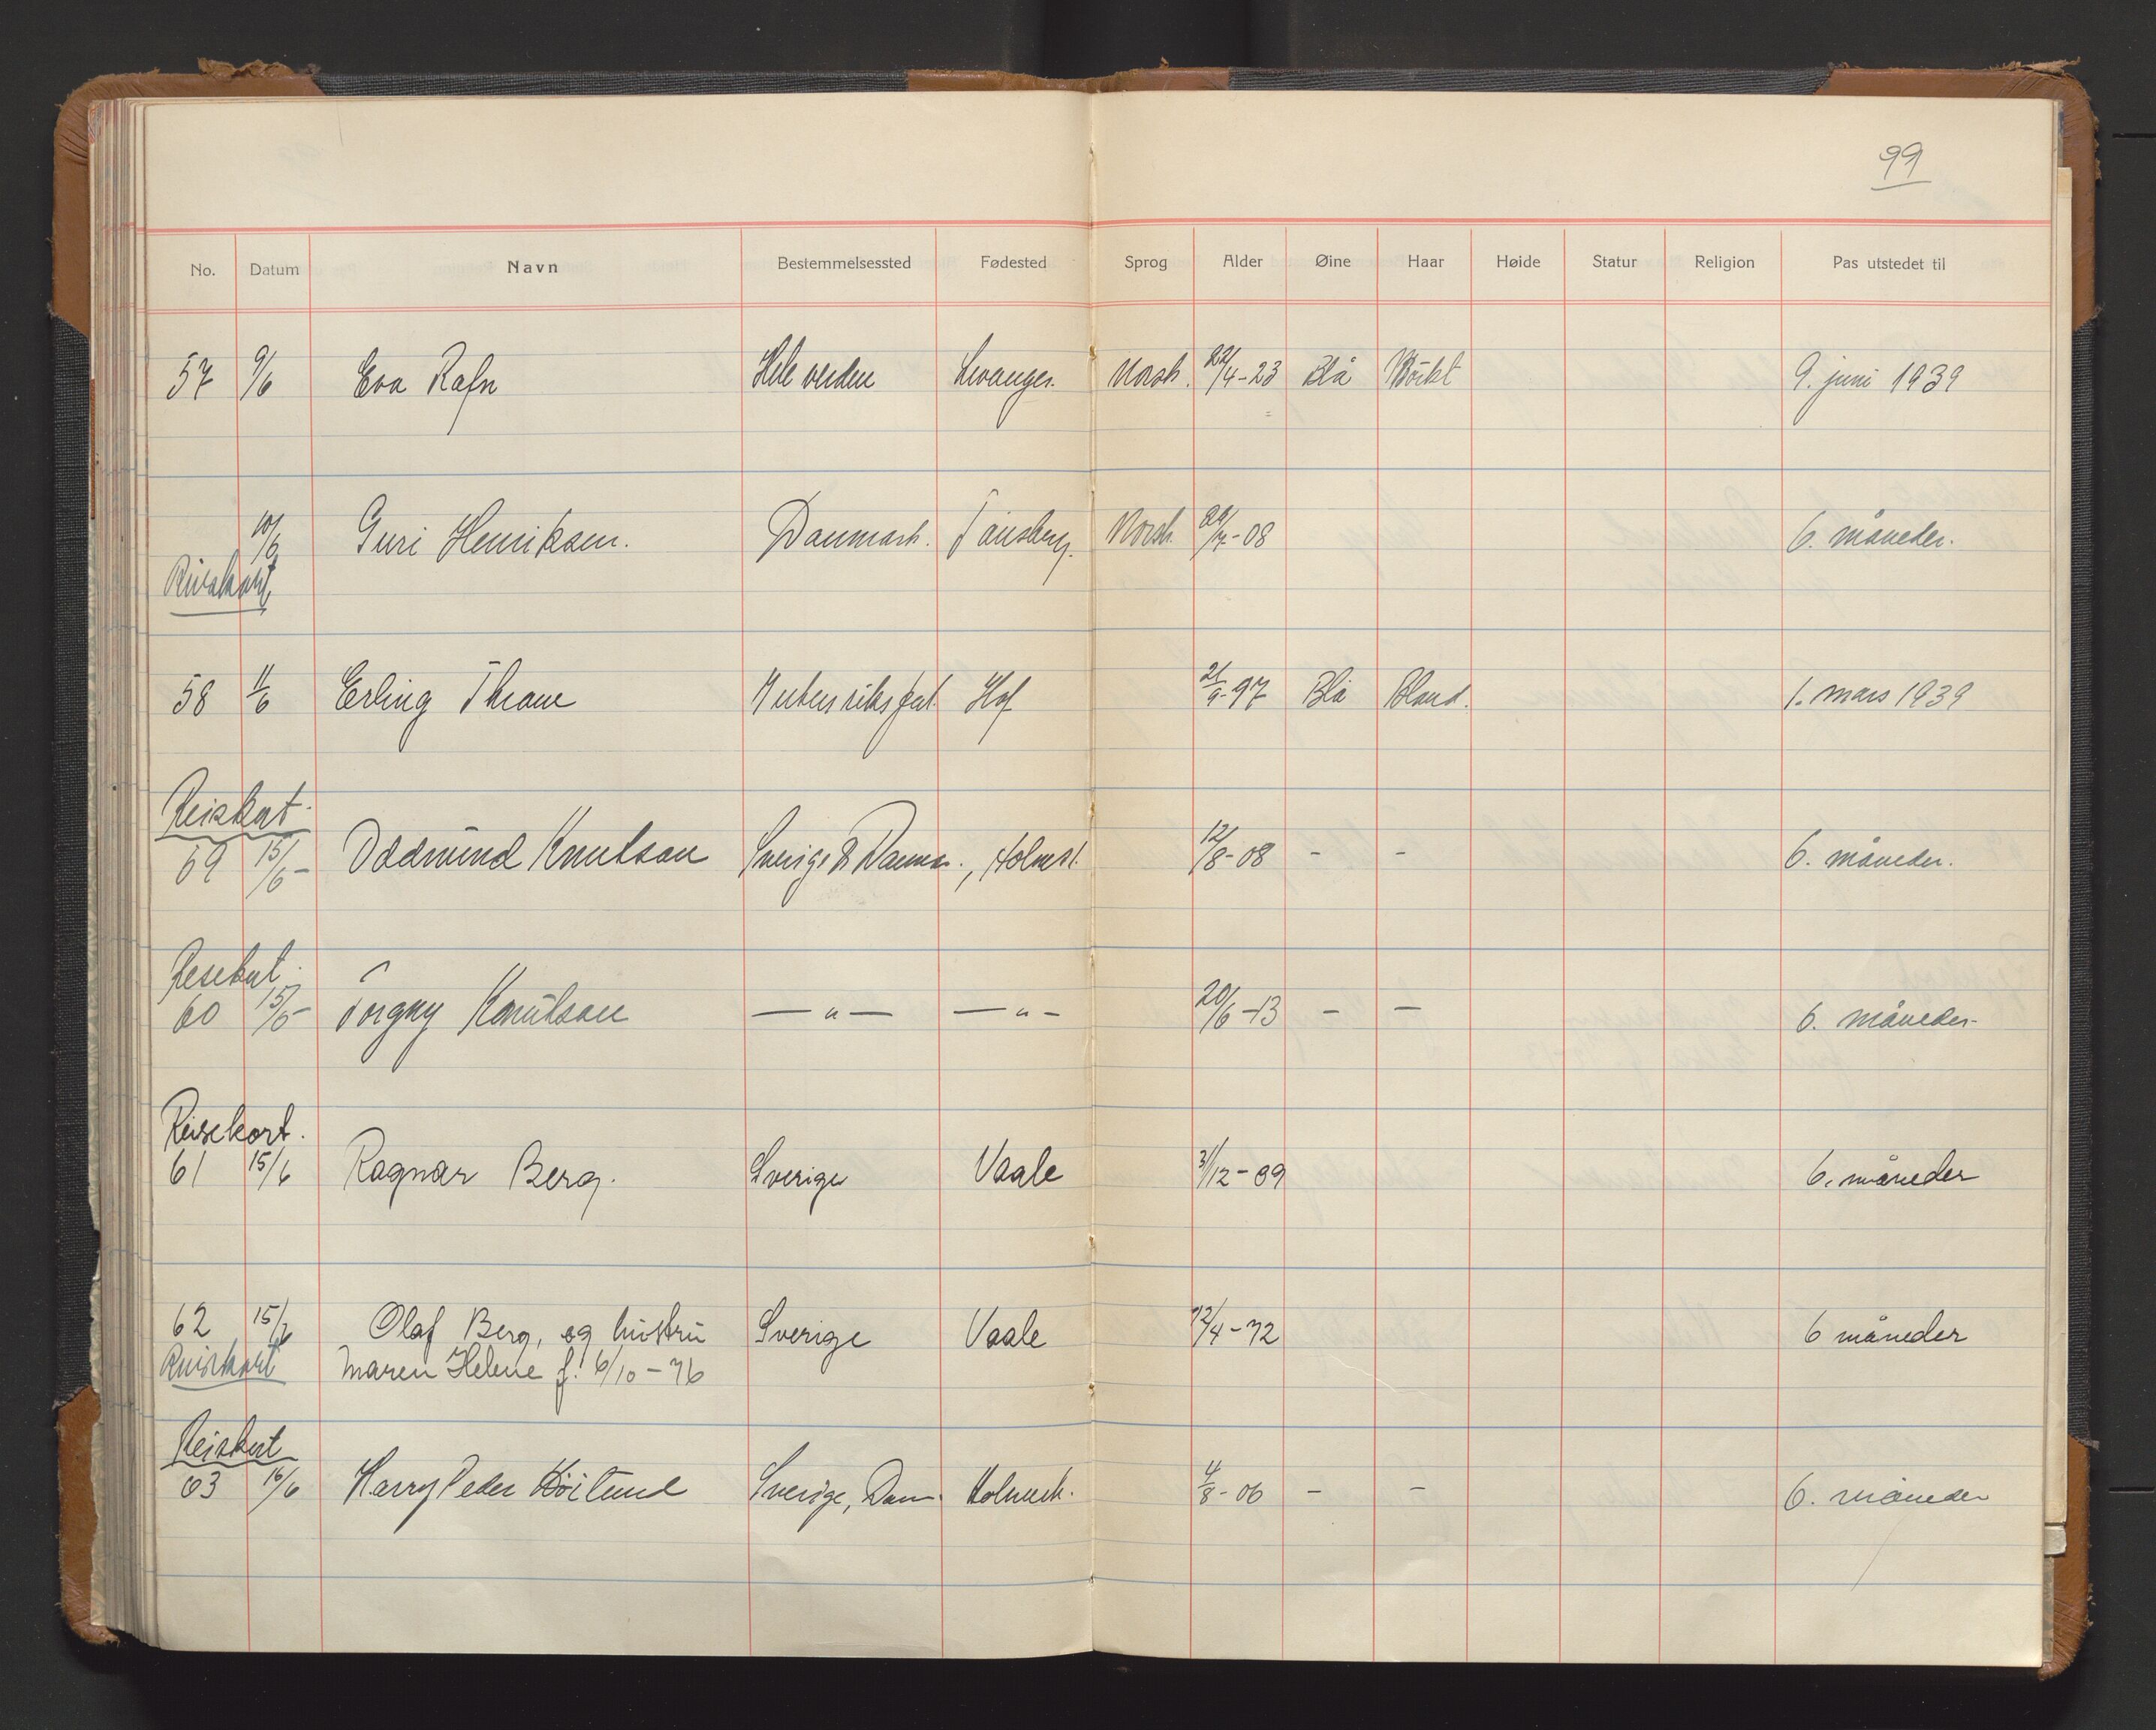 99
No. Datum Navn Bestemmelsessted Fødested Sprog Alder Øine Haar Høide Statur Religion Pas utstedet til
57 9/6 Eva Rafn Hele verden Levanger. Norsk. 22/4-23 Blå Mörkt 9. juni 1939
10/6 Guri Henriksen. Danmark. Tönsberg. Norsk. /7-08 6. måneder.
Reisekort
58 11/6 Erling Thrane Hof 21/9-97 Blå Blond. 1. mars 1939
Reisekort.
59 15/6- Oddmund Knutsen Sverige & Danm., Holmst. 12/8-08 - - 6. måneder.
Reisekort.
60 15/6- Torgny Knutsen — " — — " - 20/6-13 - - 6. måneder-
Reisekort.
61 15/6 Ragnar Berg. Sverige Vaale 31/12-09 6. måneder
62 15/6 Olaf Berg, og hustru Sverige Vaale 12/4-72 6 måneder
Reisekort Maren Helene f. 6/10-76
Reisekort
63 16/6 Harry Peder Sverige, Dan. Holmest. 4/8-06 - - 6. måneder